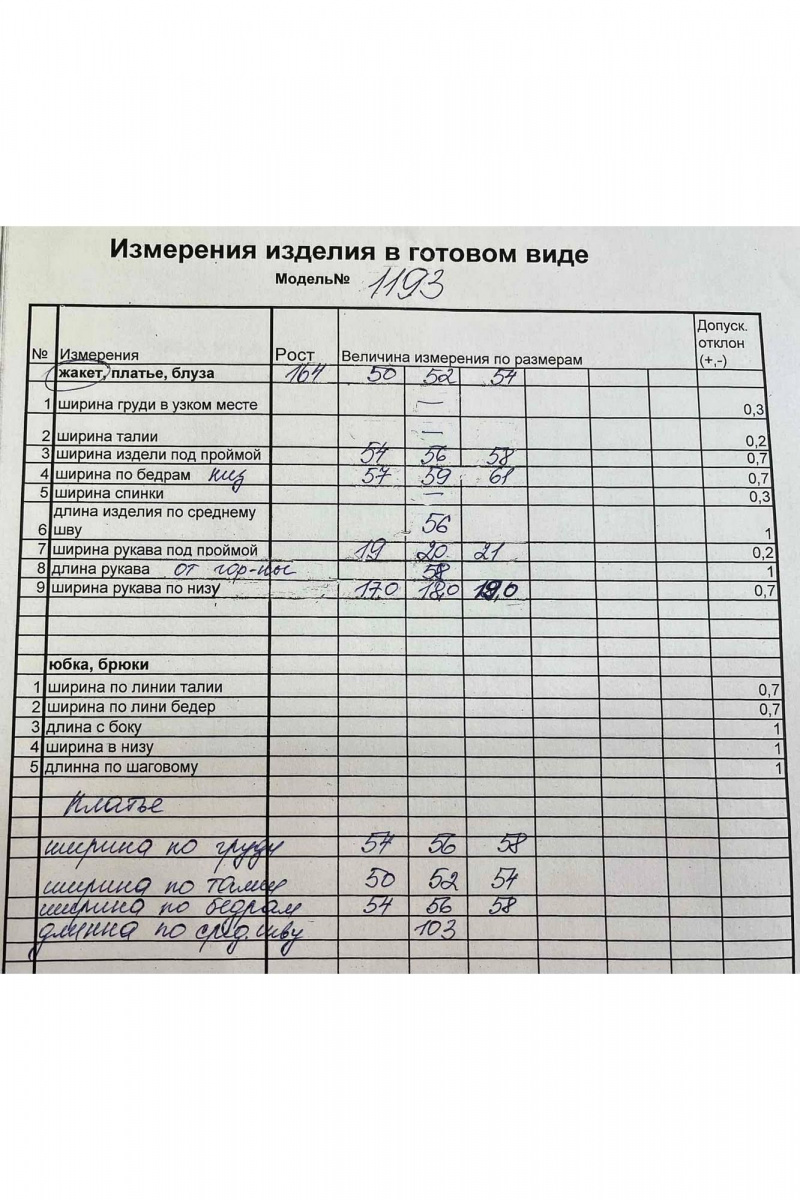 Измерения изделия в готовом виде
Модель№ 1193
№ Измерения Рост Величина измерения по размерам Допуск. отклон (+,-)
жакет, платье, блуза 164 50 52 54
1 ширина груди в узком месте — 0,3
2 ширина талии — 0,2
3 ширина издели под проймой 54 56 58 0,7
4 ширина по бедрам низ 57 59 61 0,7
5 ширина спинки — 0,3
6 длина изделия по среднему шву 56 1
7 ширина рукава под проймой 19 20 21 0,2
8 длина рукава от гор-ны 58 1
9 ширина рукава по низу 17,0 18,0 19,0 0,7
юбка, брюки
1 ширина по линии талии 0,7
2 ширина по лини бедер 0,7
3 длина с боку 1
4 ширина в низу 1
5 длинна по шаговому 1
Платье
ширина по груди 54 56 58
ширина по талии 50 52 54
ширина по бедрам 54 56 58
длинна по сред. шву 103